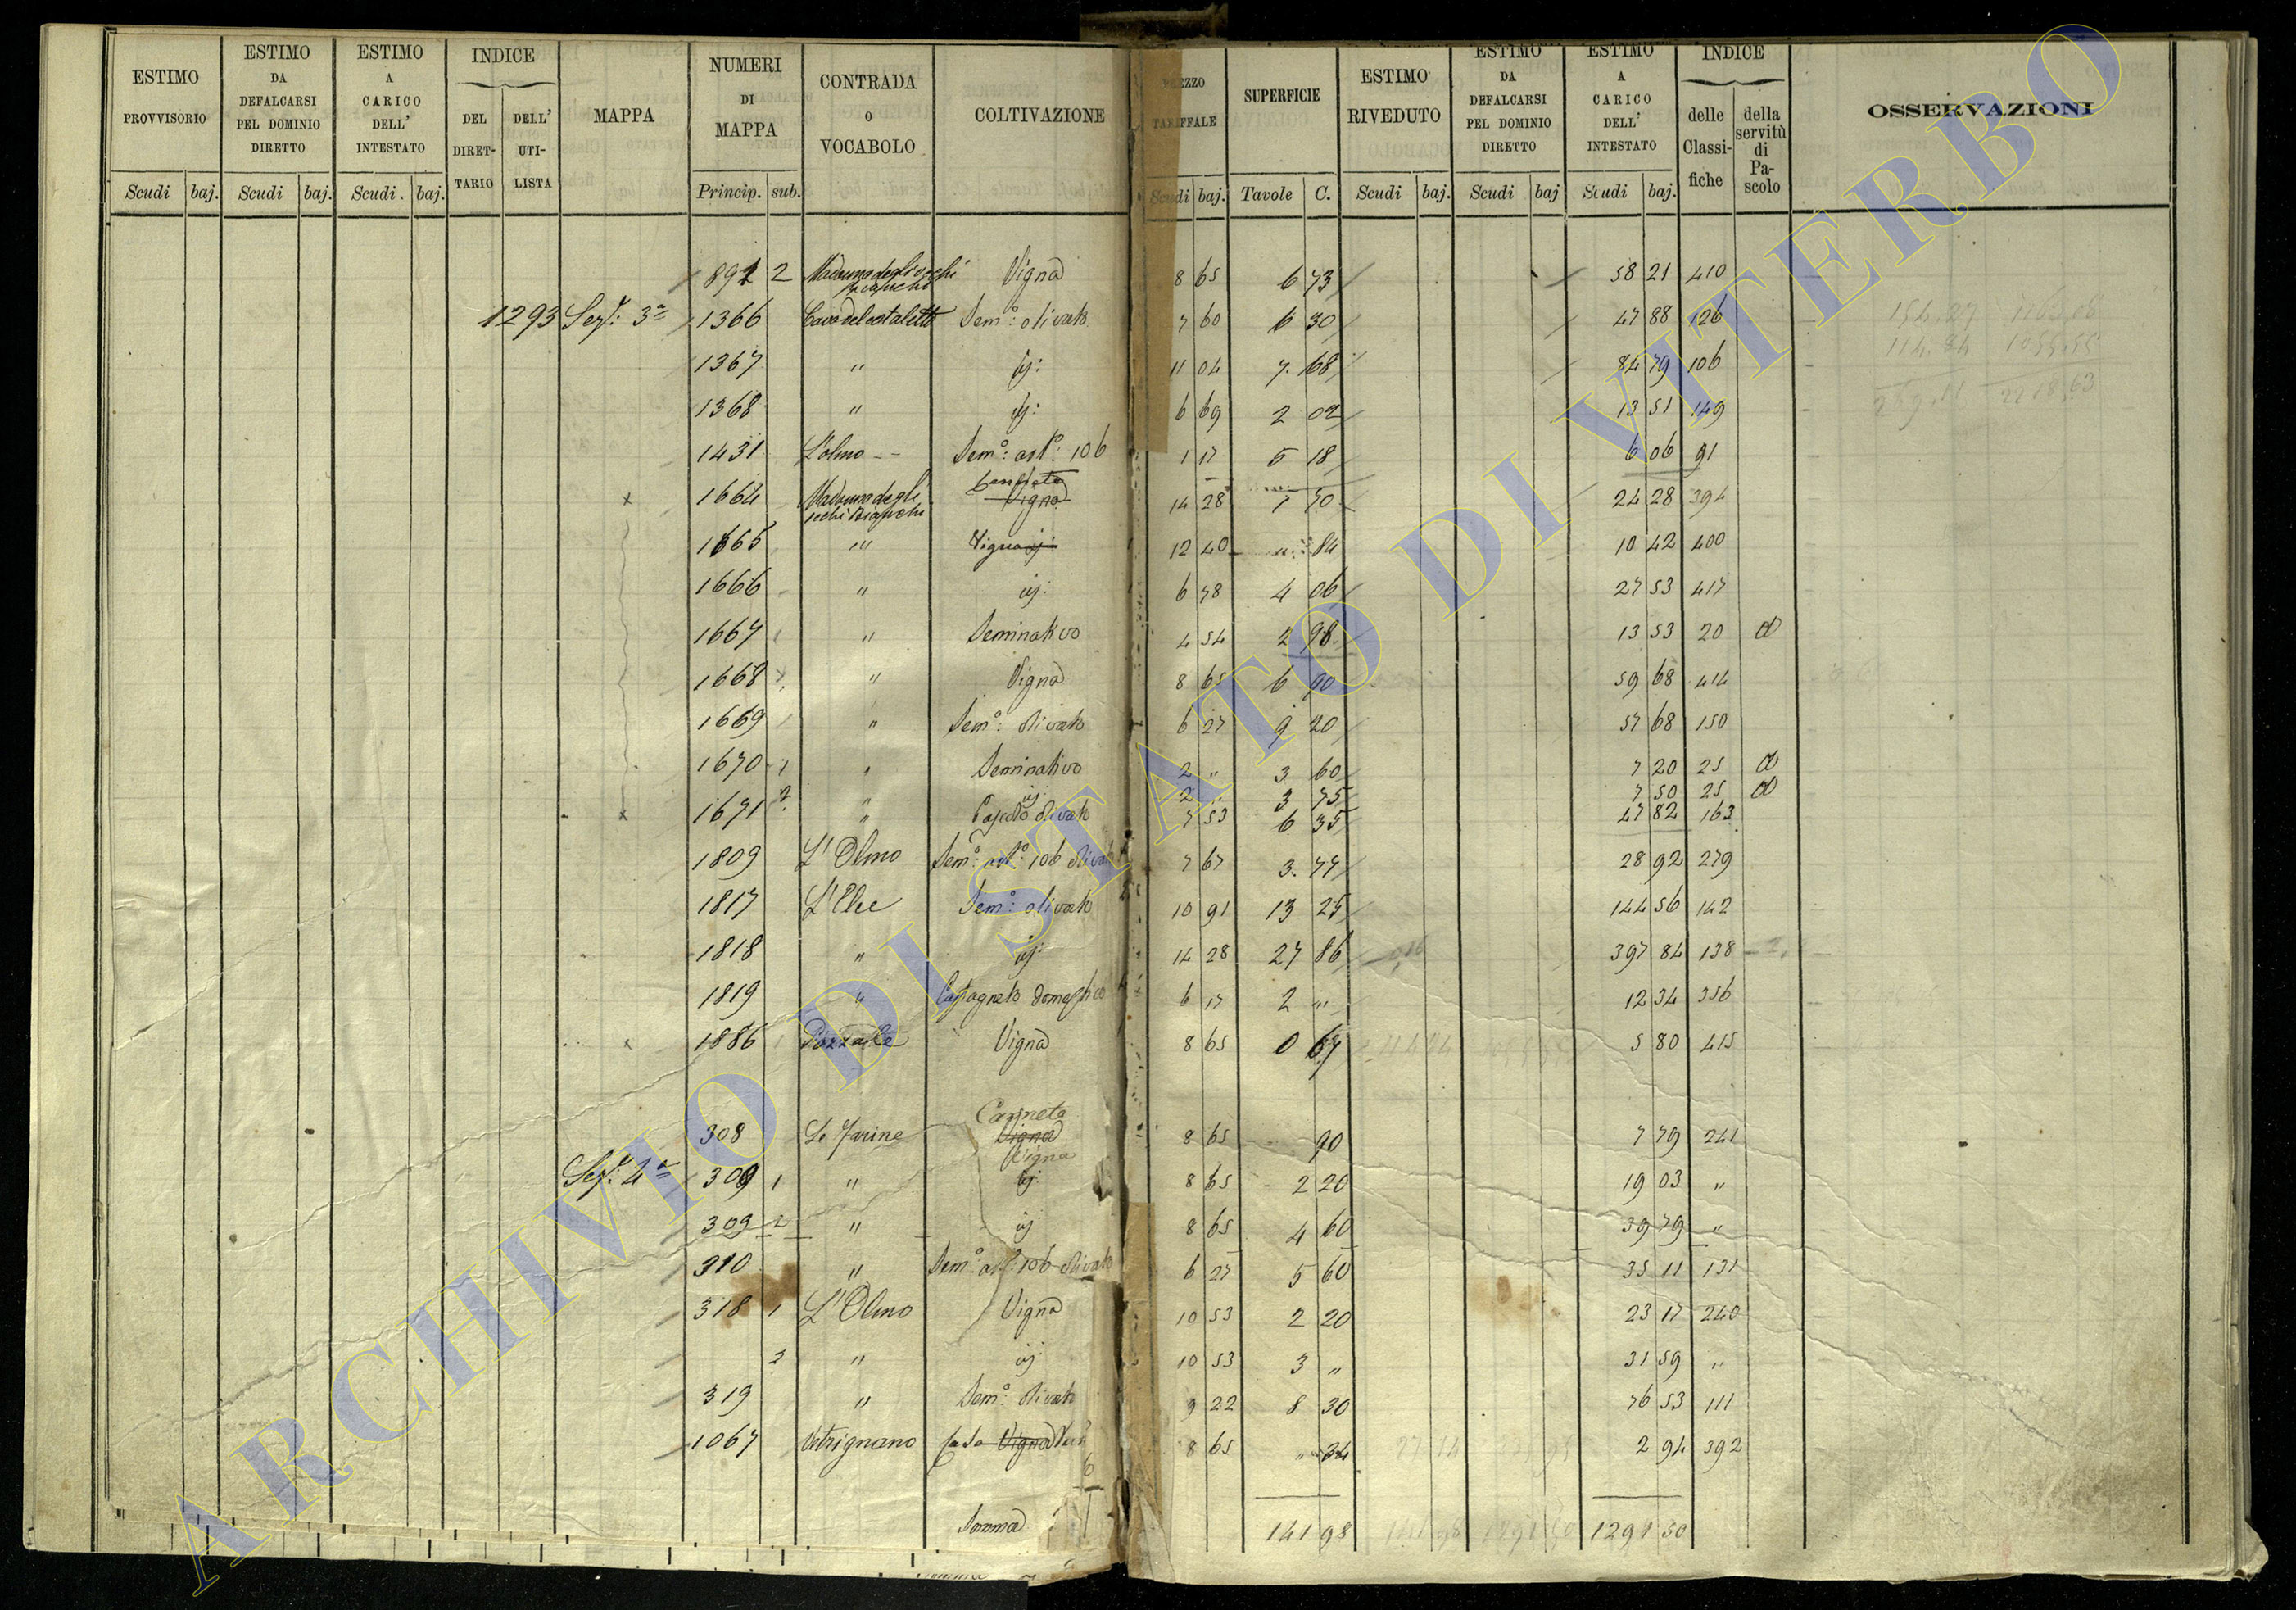 ESTIMO PROVVISORIO Scudi baj.
ESTIMO DA DEFALCARSI PEL DOMINIO DIRETTO Scudi baj.
ESTIMO A CARICO DELL' INTESTATO Scudi. baj.
INDICE DEL DIRET-TARIO DELL' UTI-LISTA
MAPPA
NUMERI DI MAPPA Princip. sub.
CONTRADA o VOCABOLO
COLTIVAZIONE
TARIFFALE baj.
SUPERFICIE Tavole C.
ESTIMO RIVEDUTO Scudi baj.
ESTIMO DA DEFALCARSI PEL DOMINIO DIRETTO Scudi baj
ESTIMO A CARICO DELL' INTESTATO Scudi baj.
INDICE delle Classi-fiche della servitù di Pa-scolo
OSSERVAZIONI
891 2 Madonna degli occhi Vigna 8 65 6 73 58 21 410
1293 Sez.e 3a 1366 Sem.o olivato 7 60 6 30 47 88 126
1367 " ij: 11 04 7. 68 84 79 106
1368 " ij: 6 69 2 02 13 51 149
1431 L'olmo - - Sem.o: 106 1 17 5 18 6 06 91
1664 Madonna degli occhi Bianchi Vigna 14 28 1 70 24 28 394
1665 " Vigna ij 12 40 84 10 42 400
1666 " ij: 6 78 4 06 27 53 417
1667 " Seminativo 4 54 2 98 13 53 20
1668 " Vigna 8 65 6 90 59 68 414
1669 " Sem.o: olivato 6 27 9 20 57 68 150
1670 1 " Seminativo 2 " 3 60 7 20 25
2 ij: 2 " 3 75 7 50 25
1671 " olivato 7 53 6 35 47 82 163
1809 L'Olmo Sem.o: 106 olivato 7 67 3. 77 28 92 279
1817 L'Elce Sem.o: olivato 10 91 13 25 144 56 142
1818 " ij: 14 28 27 86 397 84 138
1819 " Castagneto domestico 6 17 2 " 12 34 356
1886 Vigna 8 65 0 67 5 80 415
308 Le Farine Canneto Vigna 8 65 90 7 79 241
Vigna
Sez.e 4a 309 1 " ij 8 65 2 20 19 03 "
309 2 " ij 8 65 4 60 39 79 "
310 " Sem.o: 106 olivato 6 27 5 60 35 11 131
318 1 L'Olmo Vigna 10 53 2 20 23 17 240
2 " ij: 10 53 3 " 31 59 "
319 " Sem.o: olivato 9 22 8 30 76 53 111
1067 Vetrignano Vigna 8 65 " 34 2 94 392
Somma 141 98 1291 50
ARCHIVIO DI STATO DI VITERBO